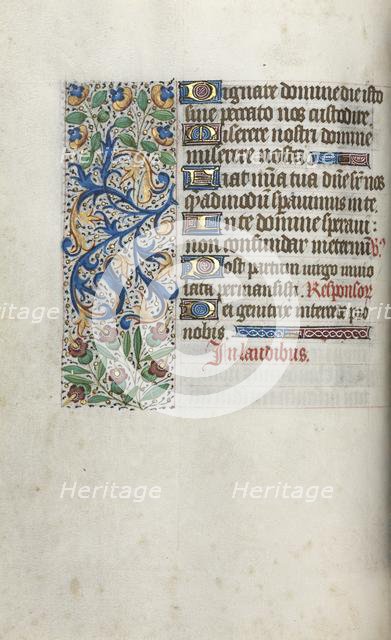 Dignare domine die isto
sine peccato nos custodire
Miserere nostri domine
miserere nostri
Fiat mīa tua dūe sr nos
q̄madmodū spauimus in te
In te domine speraui
non confundar in eternū ℟
Post partum uirgo inuio
lata permansisti Responsoꝛ
Dei genitrix intercede p̄
nobis
In laudibus.
Heritage Heritage
Heritage Heritage
Heritage Heritage